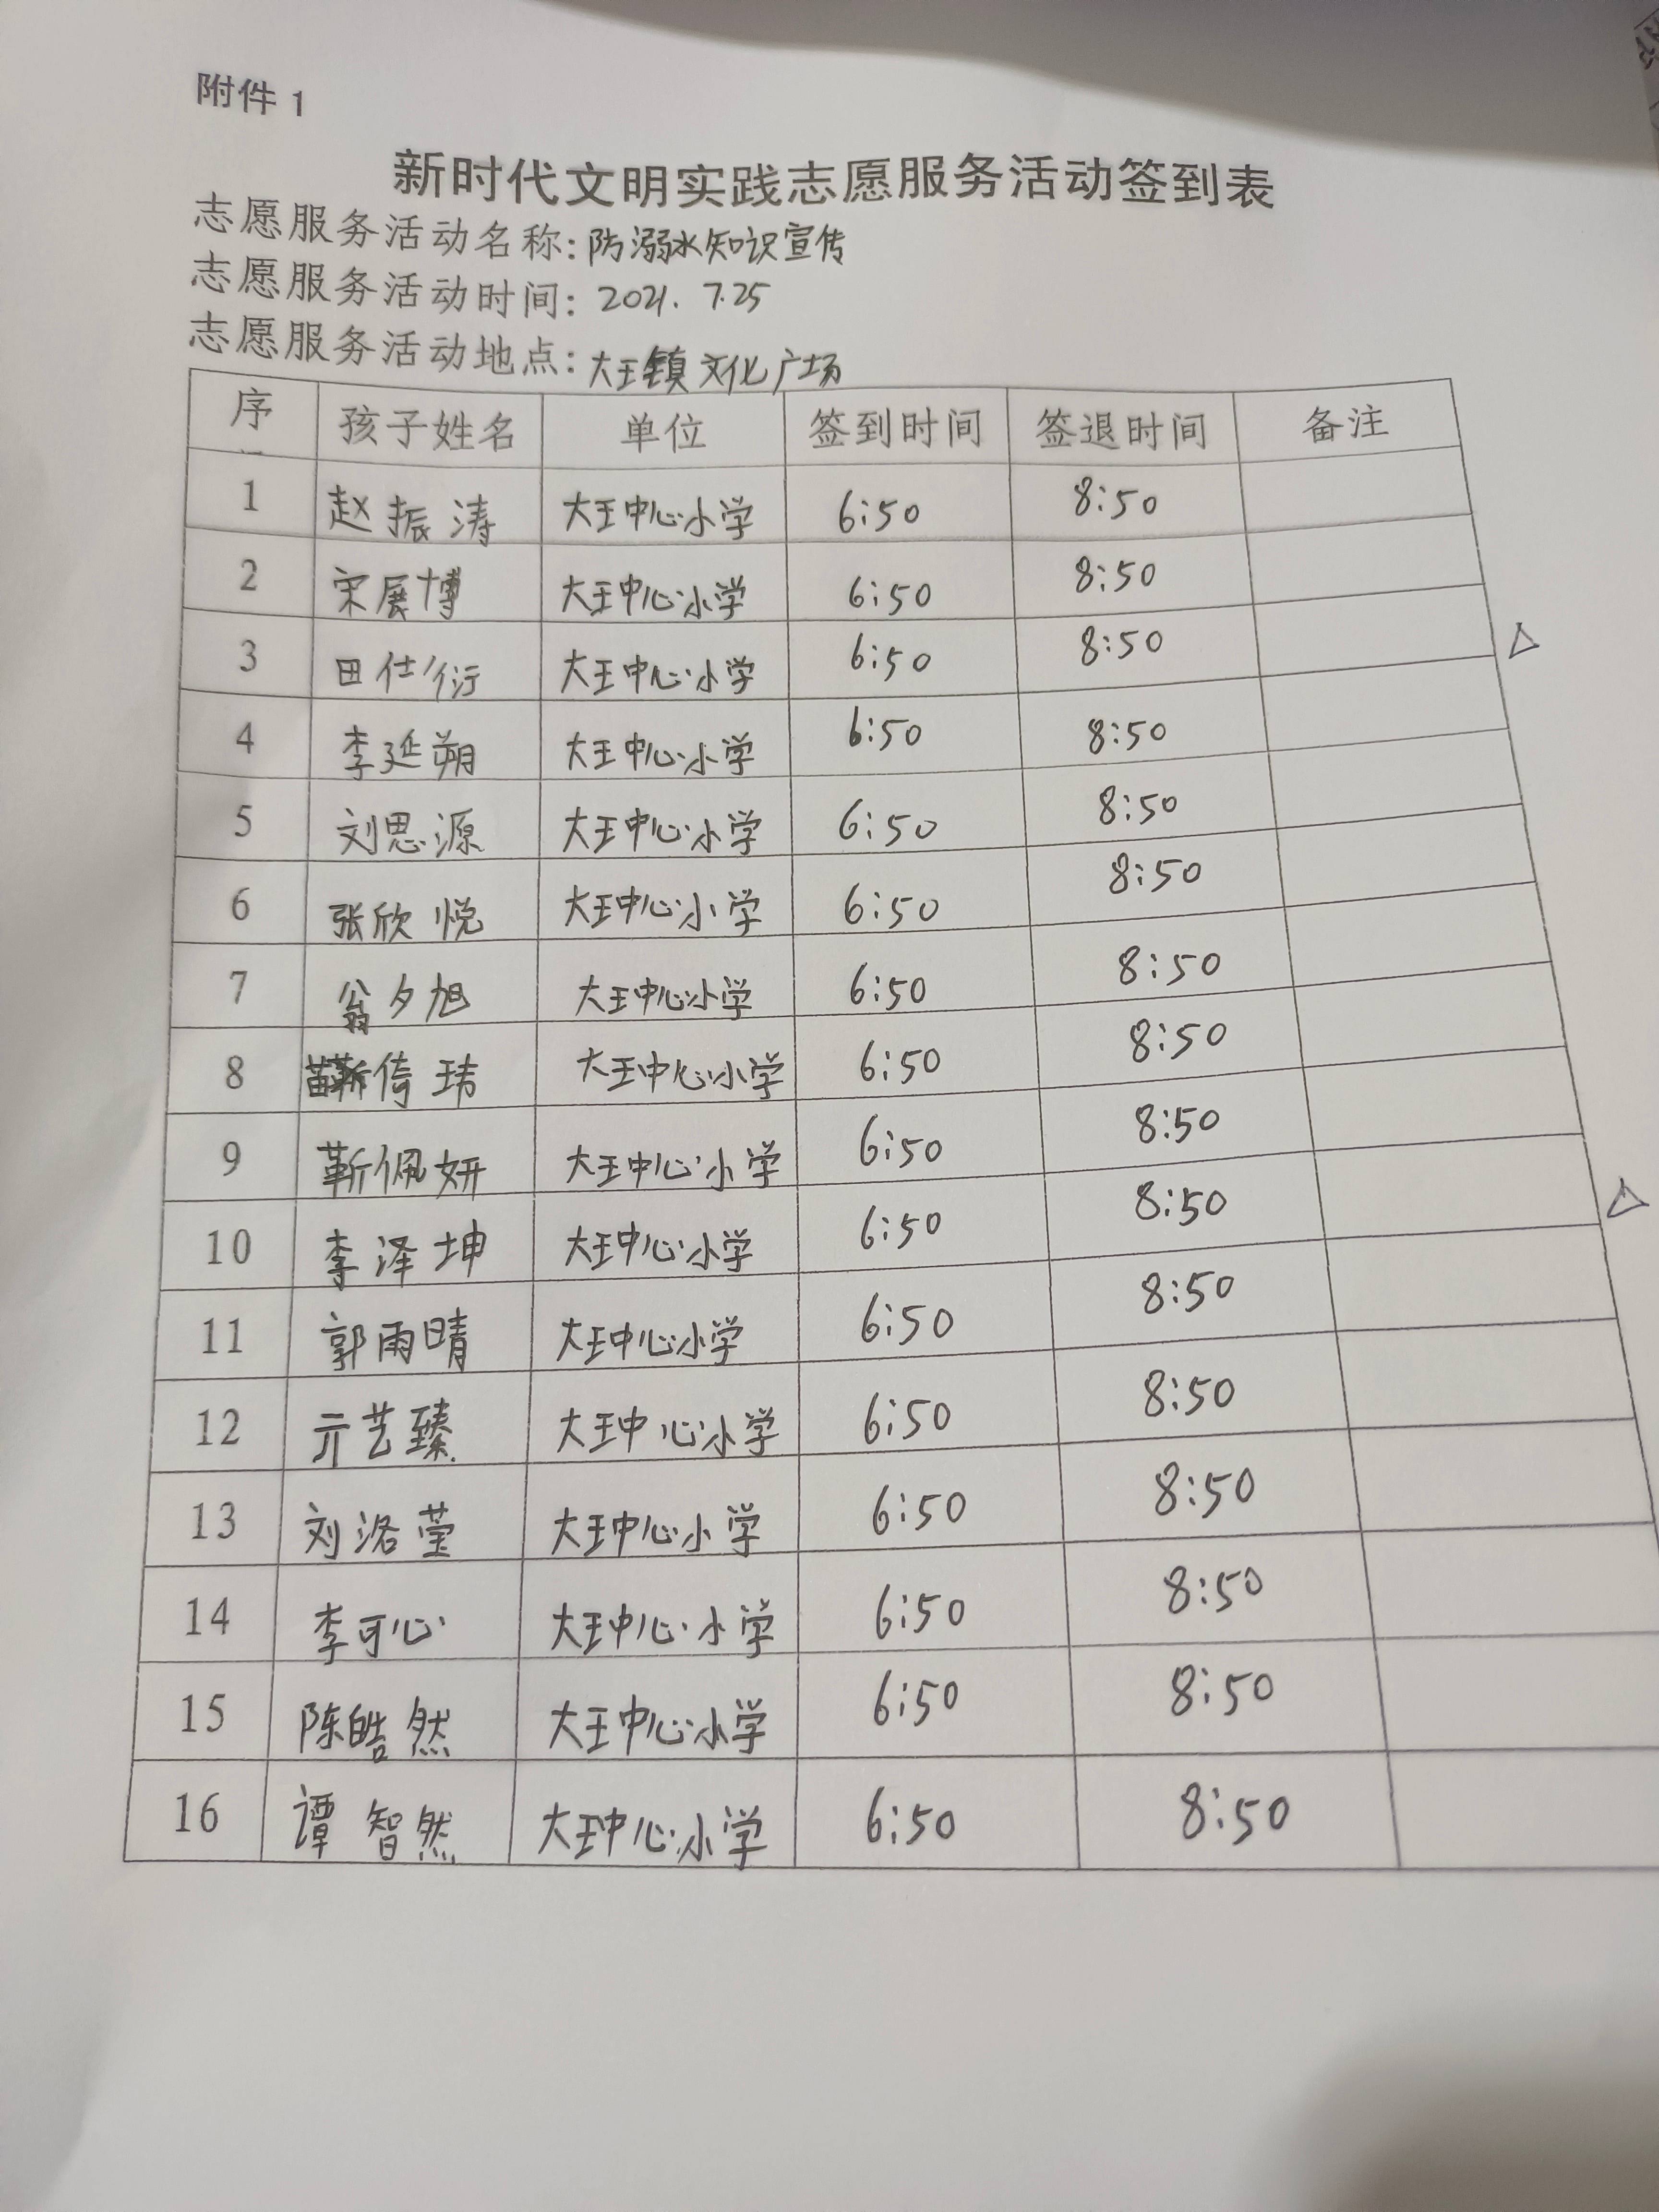 附件 1
新时代文明实践志愿服务活动签到表
志愿服务活动名称: 防溺水知识宣传
志愿服务活动时间: 2021. 7.25
志愿服务活动地点: 大王镇文化广场
序 孩子姓名 单位 签到时间 签退时间 备注
1 赵振涛 大王中心小学 6:50 8:50
2 宋展博 大王中心小学 6:50 8:50
3 田仕衍 大王中心小学 6:50 8:50
4 李延朔 大王中心小学 6:50 8:50
5 刘思源 大王中心小学 6:50 8:50
6 张欣悦 大王中心小学 6:50 8:50
7 翁夕旭 大王中心小学 6:50 8:50
8 倚玮 大王中心小学 6:50 8:50
9 靳佩妍 大王中心小学 6:50 8:50
10 李泽坤 大王中心小学 6:50 8:50
11 郭雨晴 大王中心小学 6:50 8:50
12 亓艺臻 大王中心小学 6:50 8:50
13 刘洛莹 大王中心小学 6:50 8:50
14 李可心 大王中心小学 6:50 8:50
15 陈皓然 大王中心小学 6:50 8:50
16 谭智然 大王中心小学 6:50 8:50